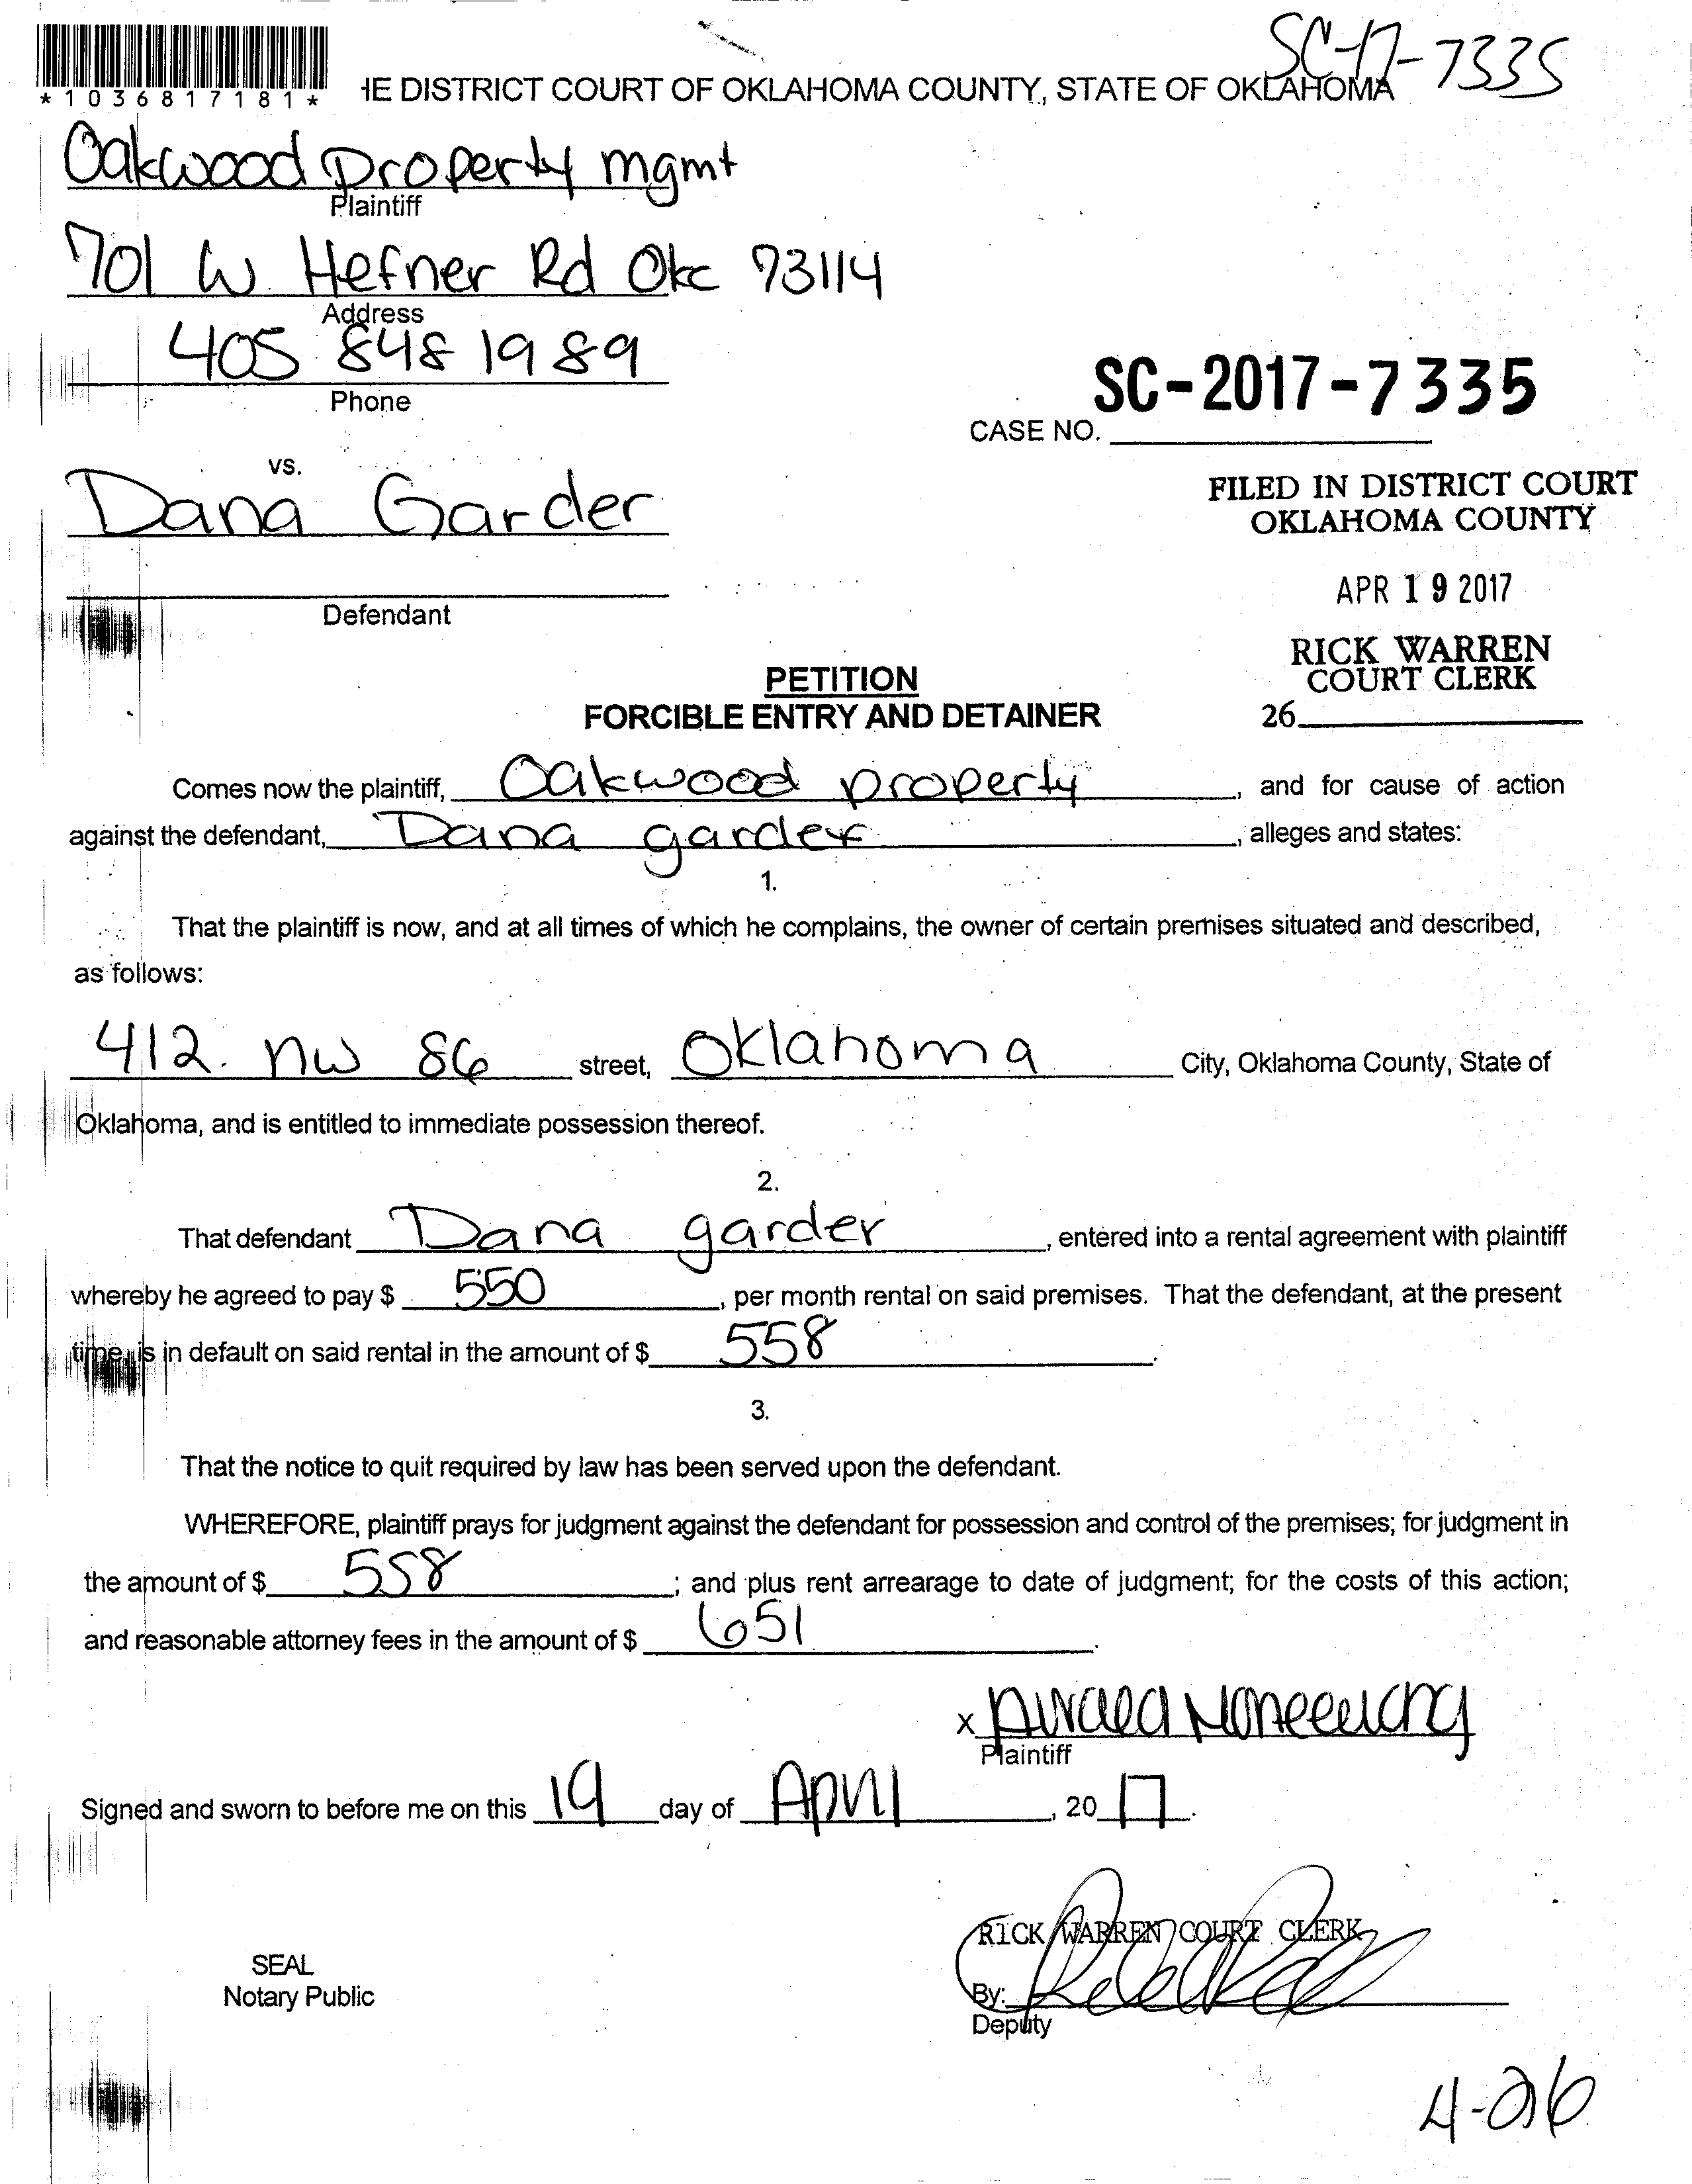 SC-17-7335
*1036817181*
HE DISTRICT COURT OF OKLAHOMA COUNTY, STATE OF OKLAHOMA
Oakwood Property mgmt
Plaintiff
701 W Hefner Rd Okc 73114
Address
405 848 1989
Phone
SC-2017-7335
CASE NO.
vs.
Dana Garder
Defendant
FILED IN DISTRICT COURT
OKLAHOMA COUNTY
APR 19 2017
RICK WARREN
COURT CLERK
26
PETITION
FORCIBLE ENTRY AND DETAINER
Comes now the plaintiff, Oakwood property, and for cause of action
against the defendant, Dana garder, alleges and states:
1.
That the plaintiff is now, and at all times of which he complains, the owner of certain premises situated and described,
as follows:
412. NW 86 street, Oklahoma City, Oklahoma County, State of
Oklahoma, and is entitled to immediate possession thereof.
2.
That defendant Dana garder, entered into a rental agreement with plaintiff
whereby he agreed to pay $ 550, per month rental on said premises. That the defendant, at the present
time, is in default on said rental in the amount of $ 558.
3.
That the notice to quit required by law has been served upon the defendant.
WHEREFORE, plaintiff prays for judgment against the defendant for possession and control of the premises; for judgment in
the amount of $ 558; and plus rent arrearage to date of judgment; for the costs of this action;
and reasonable attorney fees in the amount of $ 651.
x
Plaintiff
Signed and sworn to before me on this 19 day of April, 2017.
RICK WARREN COURT CLERK
SEAL
Notary Public
By:
Deputy
4-26